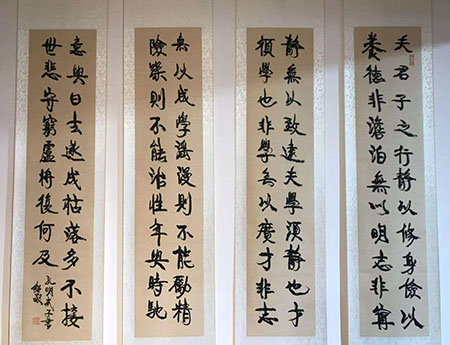 夫君子之行静以修身儉以
養德非澹泊無以明志非寧
静無以致遠夫學須静也才
須學也非學無以廣才非志
無以成學滔漫則不能勵精
險躁則不能治性年與時馳
意與日去遂成枯落多不接
世悲守窮廬將復何及
孔明誡子書